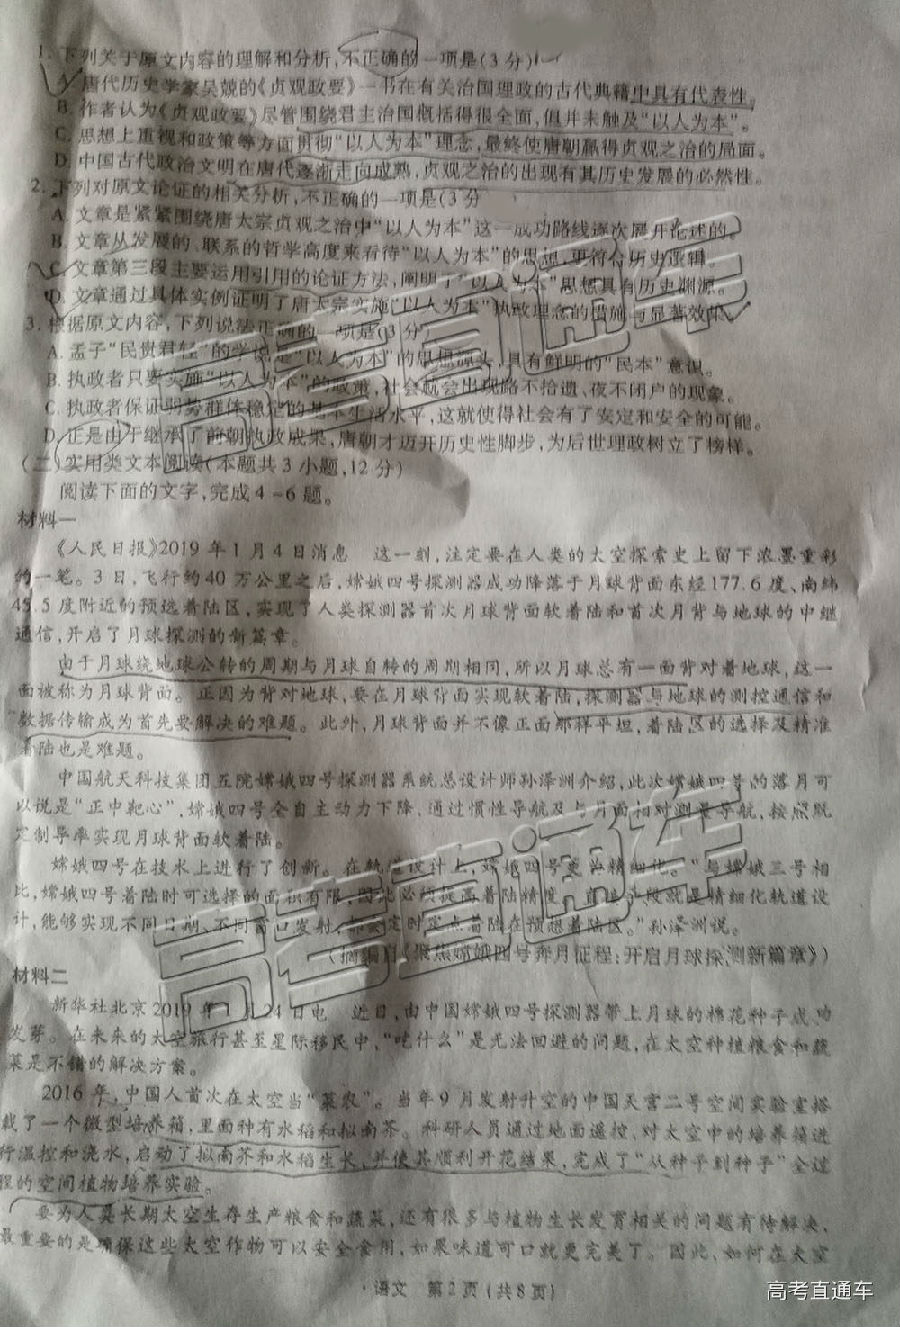 1. 下列关于原文内容的理解和分析,不正确的一项是(3分)
A. 唐代历史学家吴兢的《贞观政要》一书在有关治国理政的古代典籍中具有代表性。
B. 作者认为《贞观政要》尽管围绕君主治国概括得很全面,但并未触及“以人为本”。
C. 思想上重视和政策等方面贯彻“以人为本”理念,最终使唐朝赢得贞观之治的局面。
D. 中国古代政治文明在唐代逐渐走向成熟,贞观之治的出现有其历史发展的必然性。
2. 下列对原文论证的相关分析,不正确的一项是(3分
A. 文章是紧紧围绕唐太宗贞观之治中“以人为本”这一成功路线逐次展开论述的。
B. 文章从发展的、联系的哲学高度来看待“以人为本”的思想,更符合历史逻辑。
C. 文章第三段主要运用引用的论证方法,阐明了“以人为本”思想具有历史渊源。
D. 文章通过具体实例证明了唐太宗实施“以人为本”执政理念的措施与显著效果。
3. 根据原文内容,下列说法正确的一项是(3分)
A. 孟子“民贵君轻”的学说是“以人为本”的思想源头,具有鲜明的“民本”意识。
B. 执政者只要实施“以人为本”的政策,社会就会出现路不拾遗、夜不闭户的现象。
C. 执政者保证弱势群体稳定的基本生活水平,这就使得社会有了安定和安全的可能。
D. 正是由于继承了前朝执政成果,唐朝才迈开历史性脚步,为后世理政树立了榜样。
(二)实用类文本阅读(本题共3小题,12分)
阅读下面的文字,完成4~6题。
材料一
《人民日报》2019年1月4日消息 这一刻,注定要在人类的太空探索史上留下浓墨重彩
的一笔。3日,飞行约40万公里之后,嫦娥四号探测器成功降落于月球背面东经177.6度、南纬
45.5度附近的预选着陆区,实现了人类探测器首次月球背面软着陆和首次月背与地球的中继
通信,开启了月球探测的新篇章。
由于月球绕地球公转的周期与月球自转的周期相同,所以月球总有一面背对着地球,这一
面被称为月球背面。正因为背对地球,要在月球背面实现软着陆,探测器与地球的测控通信和
数据传输成为首先要解决的难题。此外,月球背面并不像正面那样平坦,着陆区的选择及精准
着陆也是难题。
中国航天科技集团五院嫦娥四号探测器系统总设计师孙泽洲介绍,此次嫦娥四号的落月可
以说是“正中靶心”,嫦娥四号全自主动力下降,通过惯性导航及与月面相对测量导航,按照既
定制导率实现月球背面软着陆。
嫦娥四号在技术上进行了创新。在轨道设计上,嫦娥四号更为精细化。“与嫦娥三号相
比,嫦娥四号着陆时可选择的面积有限,因此必须提高着陆精度。首选手段就是精细化轨道设
计,能够实现不同日期、不同窗口发射,都要定时定点着陆在预想着陆区。”孙泽洲说。
(摘编自《聚焦嫦娥四号奔月征程:开启月球探测新篇章》)
材料二
新华社北京2019年1月24日电 近日,由中国嫦娥四号探测器带上月球的棉花种子成功
发芽。在未来的太空旅行甚至星际移民中,“吃什么”是无法回避的问题,在太空种植粮食和蔬
菜是不错的解决方案。
2016年,中国人首次在太空当“菜农”。当年9月发射升空的中国天宫二号空间实验室搭
载了一个微型培养箱,里面种有水稻和拟南芥。科研人员通过地面遥控,对太空中的培养箱进
行温控和浇水,启动了拟南芥和水稻生长,并使其顺利开花结果,完成了“从种子到种子”全过
程的空间植物培养实验。
要为人类长期太空生存生产粮食和蔬菜,还有很多与植物生长发育相关的问题有待解决,
最重要的是确保这些太空作物可以安全食用,如果味道可口就更完美了。因此,如何在太空
·语文 第2页(共8页)
高考直通车
高考直通车
高考直通车